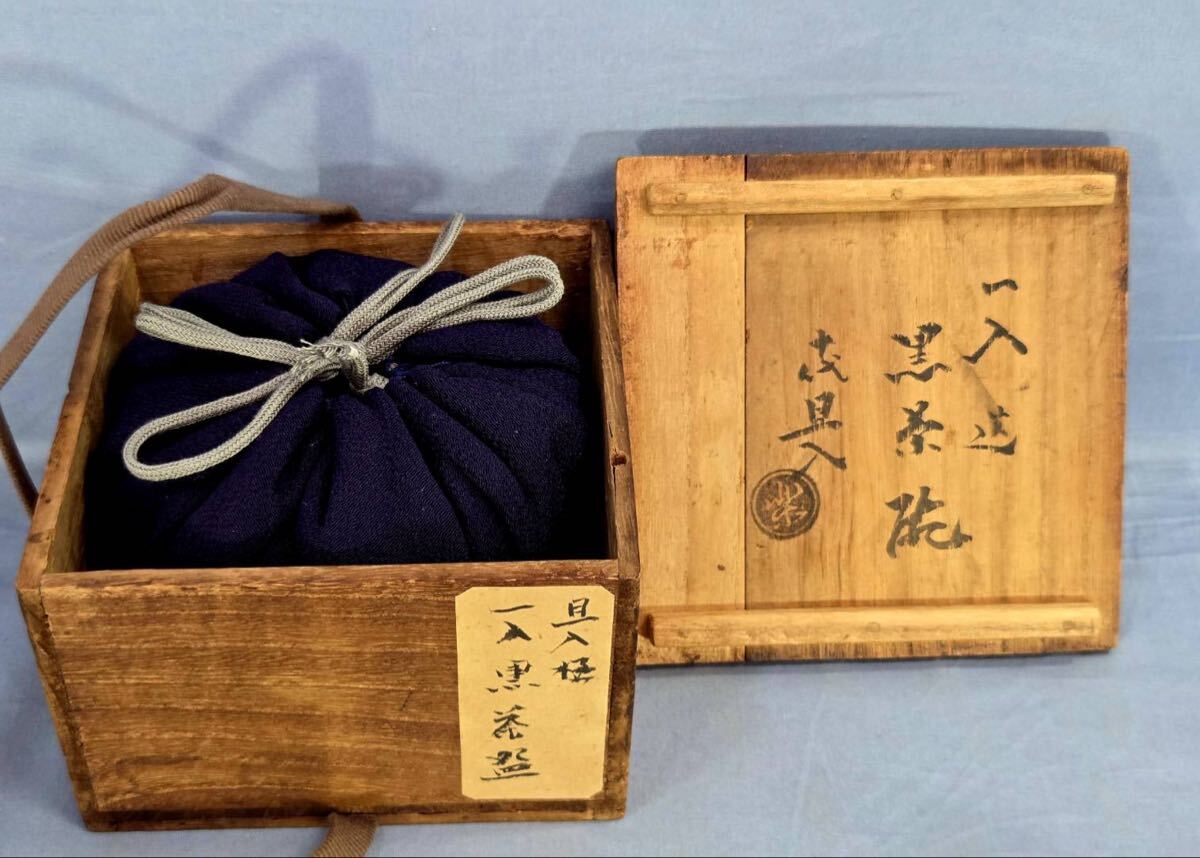 一入造
黒茶碗
吉旦入
樂
旦入極
一入黒茶碗